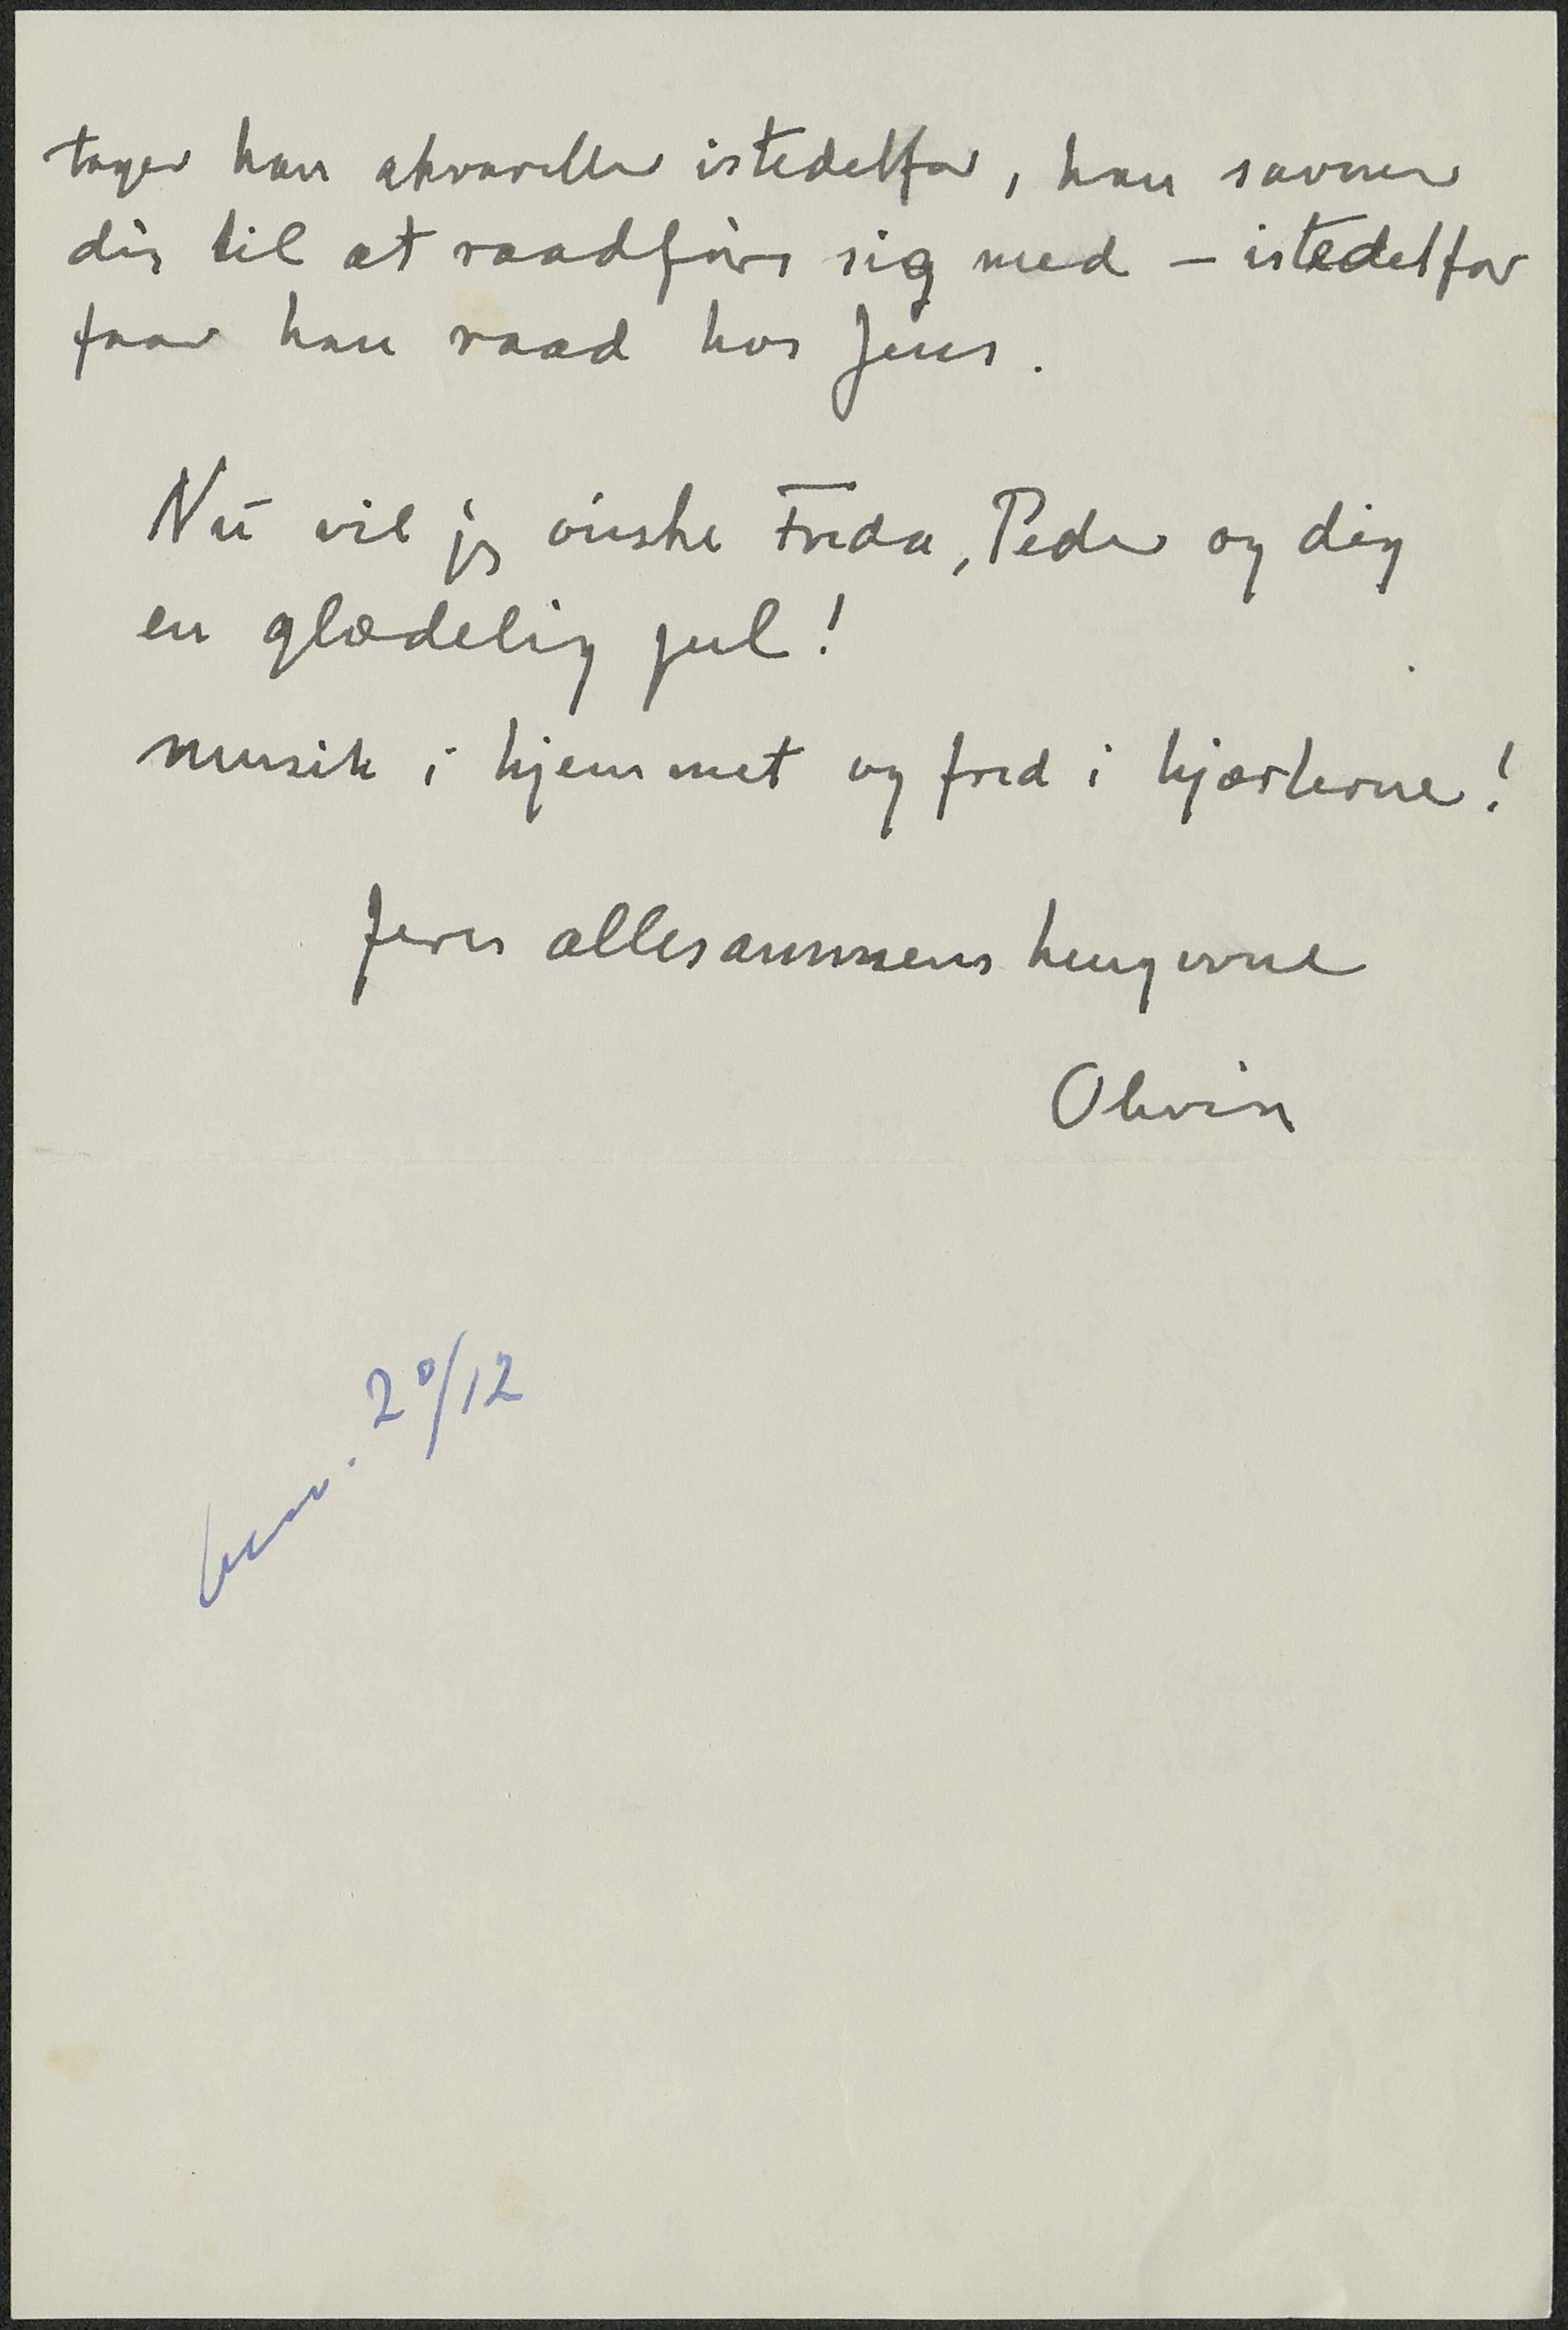 tager han akvareller istedetfor, han savner
dig til at raadföre sig med – istedetfor
faar han raad hos Jens.
Nu vil jeg önske Frida, Peder og dig
en glædelig jul!
musik i hjemmet og fred i hjærterne!
Jeres allesammens hengivne
20/12